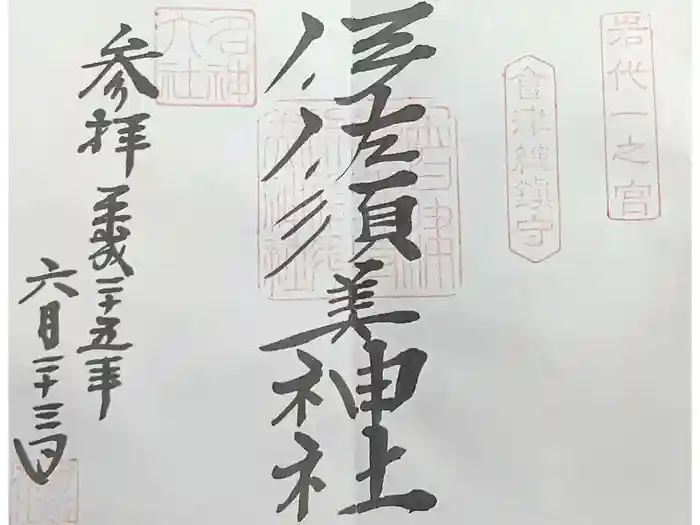 岩代一之宮
會津總鎮守
伊佐須美神社
名神
大社
参拝
平成二十五年
六月二十三日